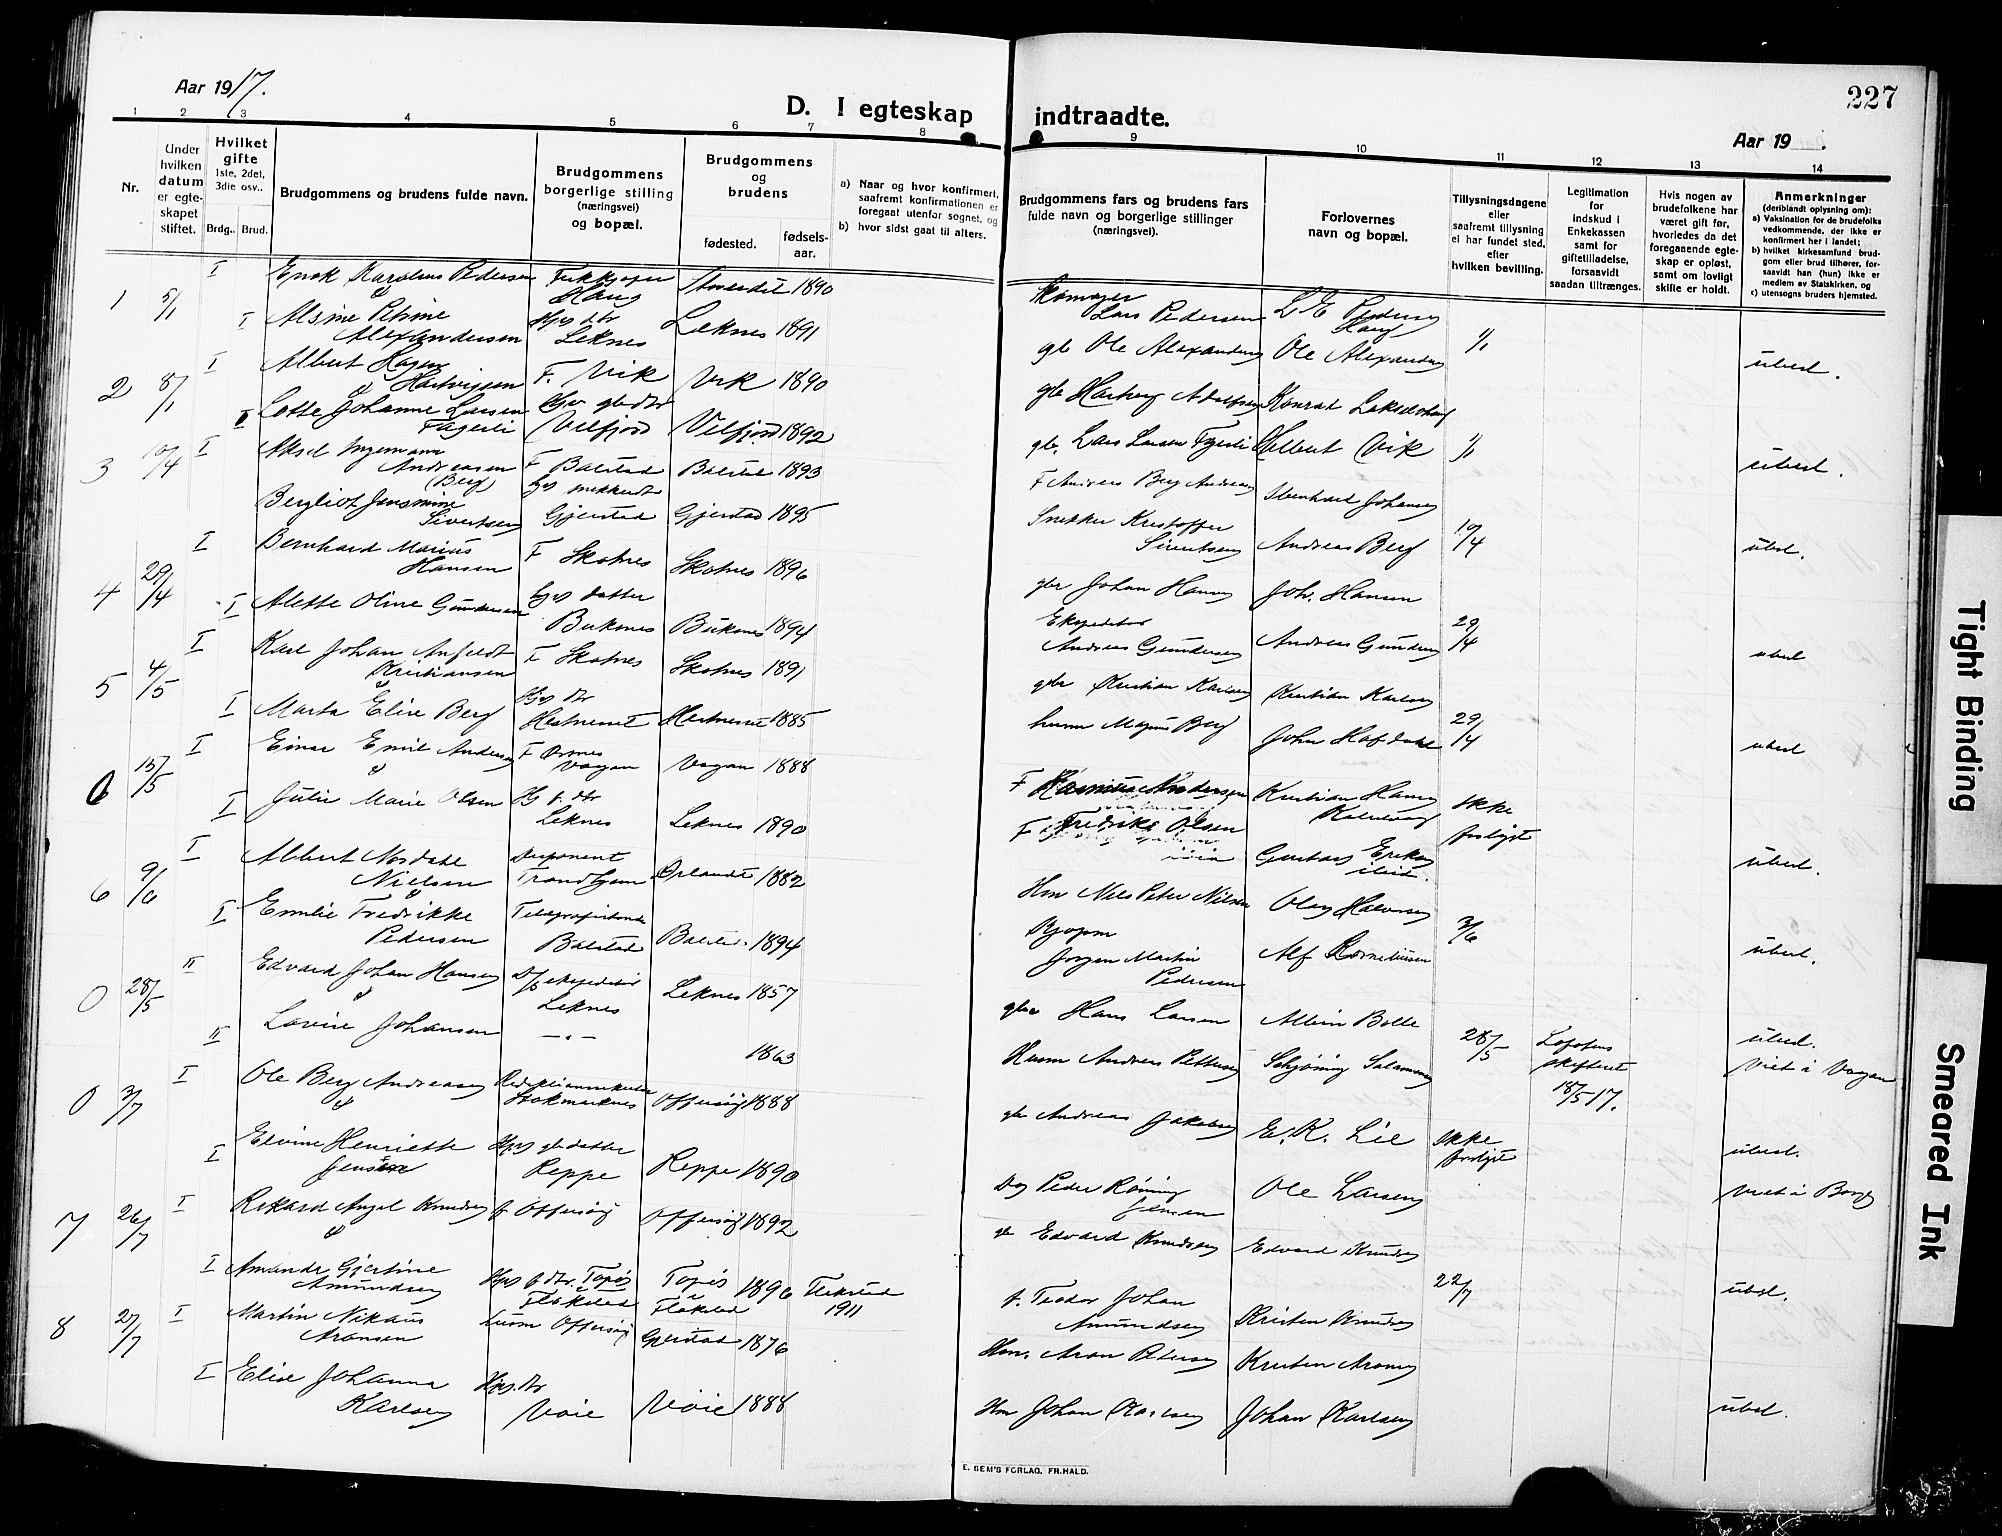 Aar 1917.
D. I egteskap indtraadte.
227
Aar 19 .
1 2 3 4 5 6 7 8 9 10 11 12 13 14
Nr.
Under
hvilken
datum
er egte-
skapet
stiftet.
Hvilket
gifte
1ste, 2det,
3die osv..
Brdg.. Brud.
Brudgommens og brudens fulde navn.
Brudgommens
borgerlige stilling
(næringsvei)
og bopæl.
Brudgommens
og
brudens
fødested.
fødsels-
aar.
a) Naar og hvor konfirmert,
saafremt konfirmationen er
foregaat utenfor sognet, og
b) hvor sidst gaat til alters.
Brudgommens fars og brudens fars
fulde navn og borgerlige stillinger
(næringsvei).
Forlovernes
navn og bopæl.
Tillysningsdagene
eller
saafremt tillysning
ei har fundet sted,
efter
hvilken bevilling.
Legitimation
for
indskud i
Enkekassen
samt for
giftetilladelse,
forsaavidt
saadan tiltrænges.
Hvis nogen av
brudefolkene har
været gift før,
hvorledes da det
foregaaende egte-
skap er opløst,
samt om lovligt
skifte er holdt.
Anmerkninger
(deriblandt oplysning om):
a) Vaksination for de brudefolks
vedkommende, der ikke er
konfirmert her i landet;
b) hvilket kirkesamfund brud-
gom eller brud tilhører, for-
saavidt han (hun) ikke er
medlem av Statskirken, og
c) utensogns bruders hjemsted.
1 5/1 I Enok Karolius Pedersen Haug 1890
Lars Pedersen L E Pedersen Haug
I Alsine Petrine Alexandersen Leknes Leknes 1891
gbr Ole Alexandersen Ole Alexandersen 1/1 ubesl.
2 8/1 I Albert Hagen Hartvigsen F. Vik Vik 1890
gbr Hartvig Adolfsen Konrad
II Lotte Johanne Larsen Fagerli Vilfjord Vilfjord 1892
gbr. Lars Larsen Fagerli Vik 1/1 ubesl.
3 10/4 I Aksel Ingemann Andreasen (Berg) F Balstad Balstad 1893
F Andreas Berg Andreasen Johansen
Bergliot Jensmine Sivertsen Gjerstad Gjerstad 1895
Snekker Kristoffer Sivertsen Andreas Berg 10/4 ubesl.
4 29/4 I Bernhard Marius Hansen F Skotnes Skotnes 1896
gbr Johan Hansen Joh. Hansen
I Alette Oline Gundersen Hjv datter Buksnes Buksnes 1894
Ekspeditør Andreas Gundersen Andreas Gundersen 29/4 ubesl
5 4/5 I Karl Johan Anfeldt Kristiansen F Skotnes Skotnes 1891
gbr Kristian Karlsen Kristian Karlsen
I Marta Elise Berg Hjv dtr Hestneset Hestneset 1885
husm Magnus Berg John Hofdahl 29/4 ubesl
0 15/5 I Einar Emil Andersen F Ørsnes Vågan Vagan 1888
F Rasmus Andersen Kristian Hansen ikke forlyst
I Julie Marie Olsen Leknes Leknes 1890
F Fredrik Olsen Gustav Eriksen ibid. ubesl.
6 9/6 I Albert Nordahl Nielsen Trondhjem Ørlandet 1882
Hm Nils Peter Nilsen Olav Halvorsen 3/6
I Emilie Fredrikke Pedersen Balstad Balstad 1894
Kjøpm Jørgen Martin Pedersen Alf Kornelinsen ubesl.
0 28/5 II Edvard Johan Hansen D/S ekspeditør Leknes Leknes 1857
gbr Hans Larsen Albin Bolle
II Lavine Johansen —"— 1863
Husm Andreas Pettersen Schjøning Salamonsen 28/5 Lofotens skifteret 18/5 17. ubesl. Viet i Vagan
0 3/7 I Ole Berg Andreasen Stokmarknes Offersøy 1888
gbr Andreas Jakobsen E. K. Lie ikke forlyst
I Elvine Henriette Jensen Hjv gbr datter Reppe Reppe 1890
Peder Røning Jensen Ole Larsen ubesl. Viet i Borge
7 26/7 I Rikard Angel Knudsen f. Offersøy Offersøy 1892
gbr Edvard Knudsen Edvard Knudsen
I Amanda Gjertine Amundsen Hjv f dtr. Topøs Flakstad Topøs Flakstad 1896 Flakstad 1911
f. Teodor Johan Amundsen Kristen Knudsen 22/7 ubesl.
8 27/7 I Martin Nikaus Aronsen Offersøy Gjerstad 1876
Hm. Aron Petersen Kristen Aronsen
I Elise Johanna Karlsen Hjv. dtr Voie Voie 1888
Hm Johan Karlsen Johan Karlsen ubesl.
E. SEM'S FORLAG, FR.HALD.
Tight Binding
Smeared Ink